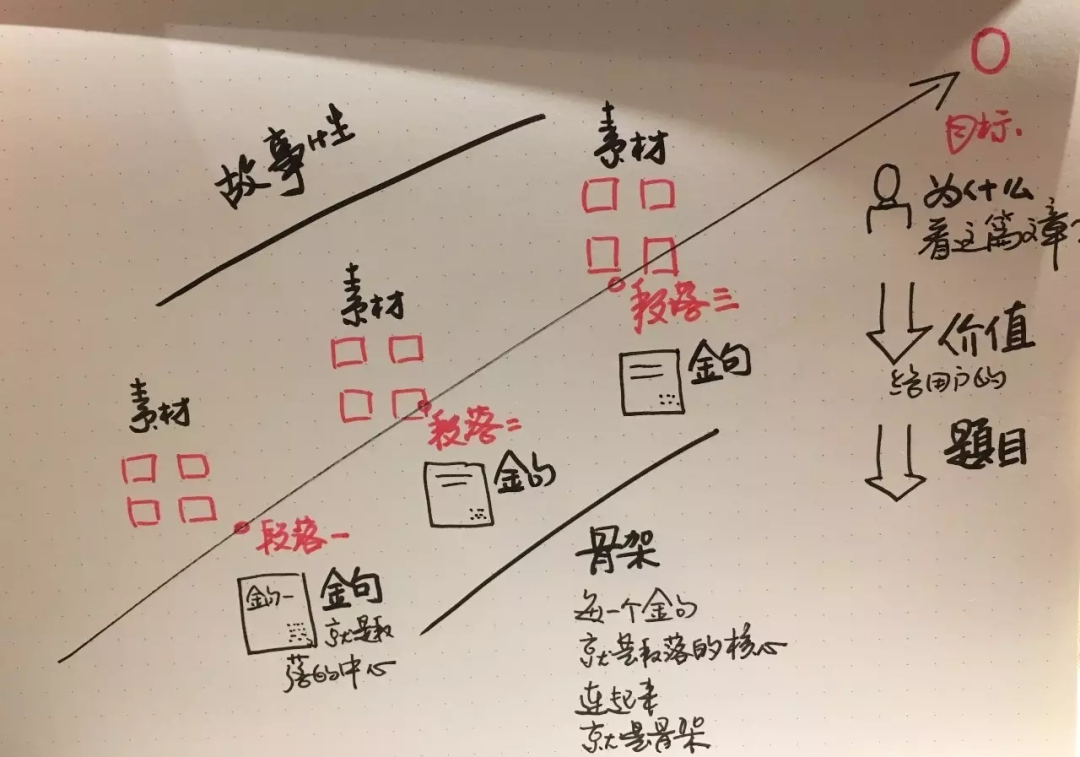 故事性
素材
素材
素材
段落一
金句一
金句
就是段
落的中心
段落二
金句
段落三
金句
骨架
每一个金句
就是段落的核心
连起来
就是骨架
目标.
为什么
看这篇文章?
价值
给用户的
题目